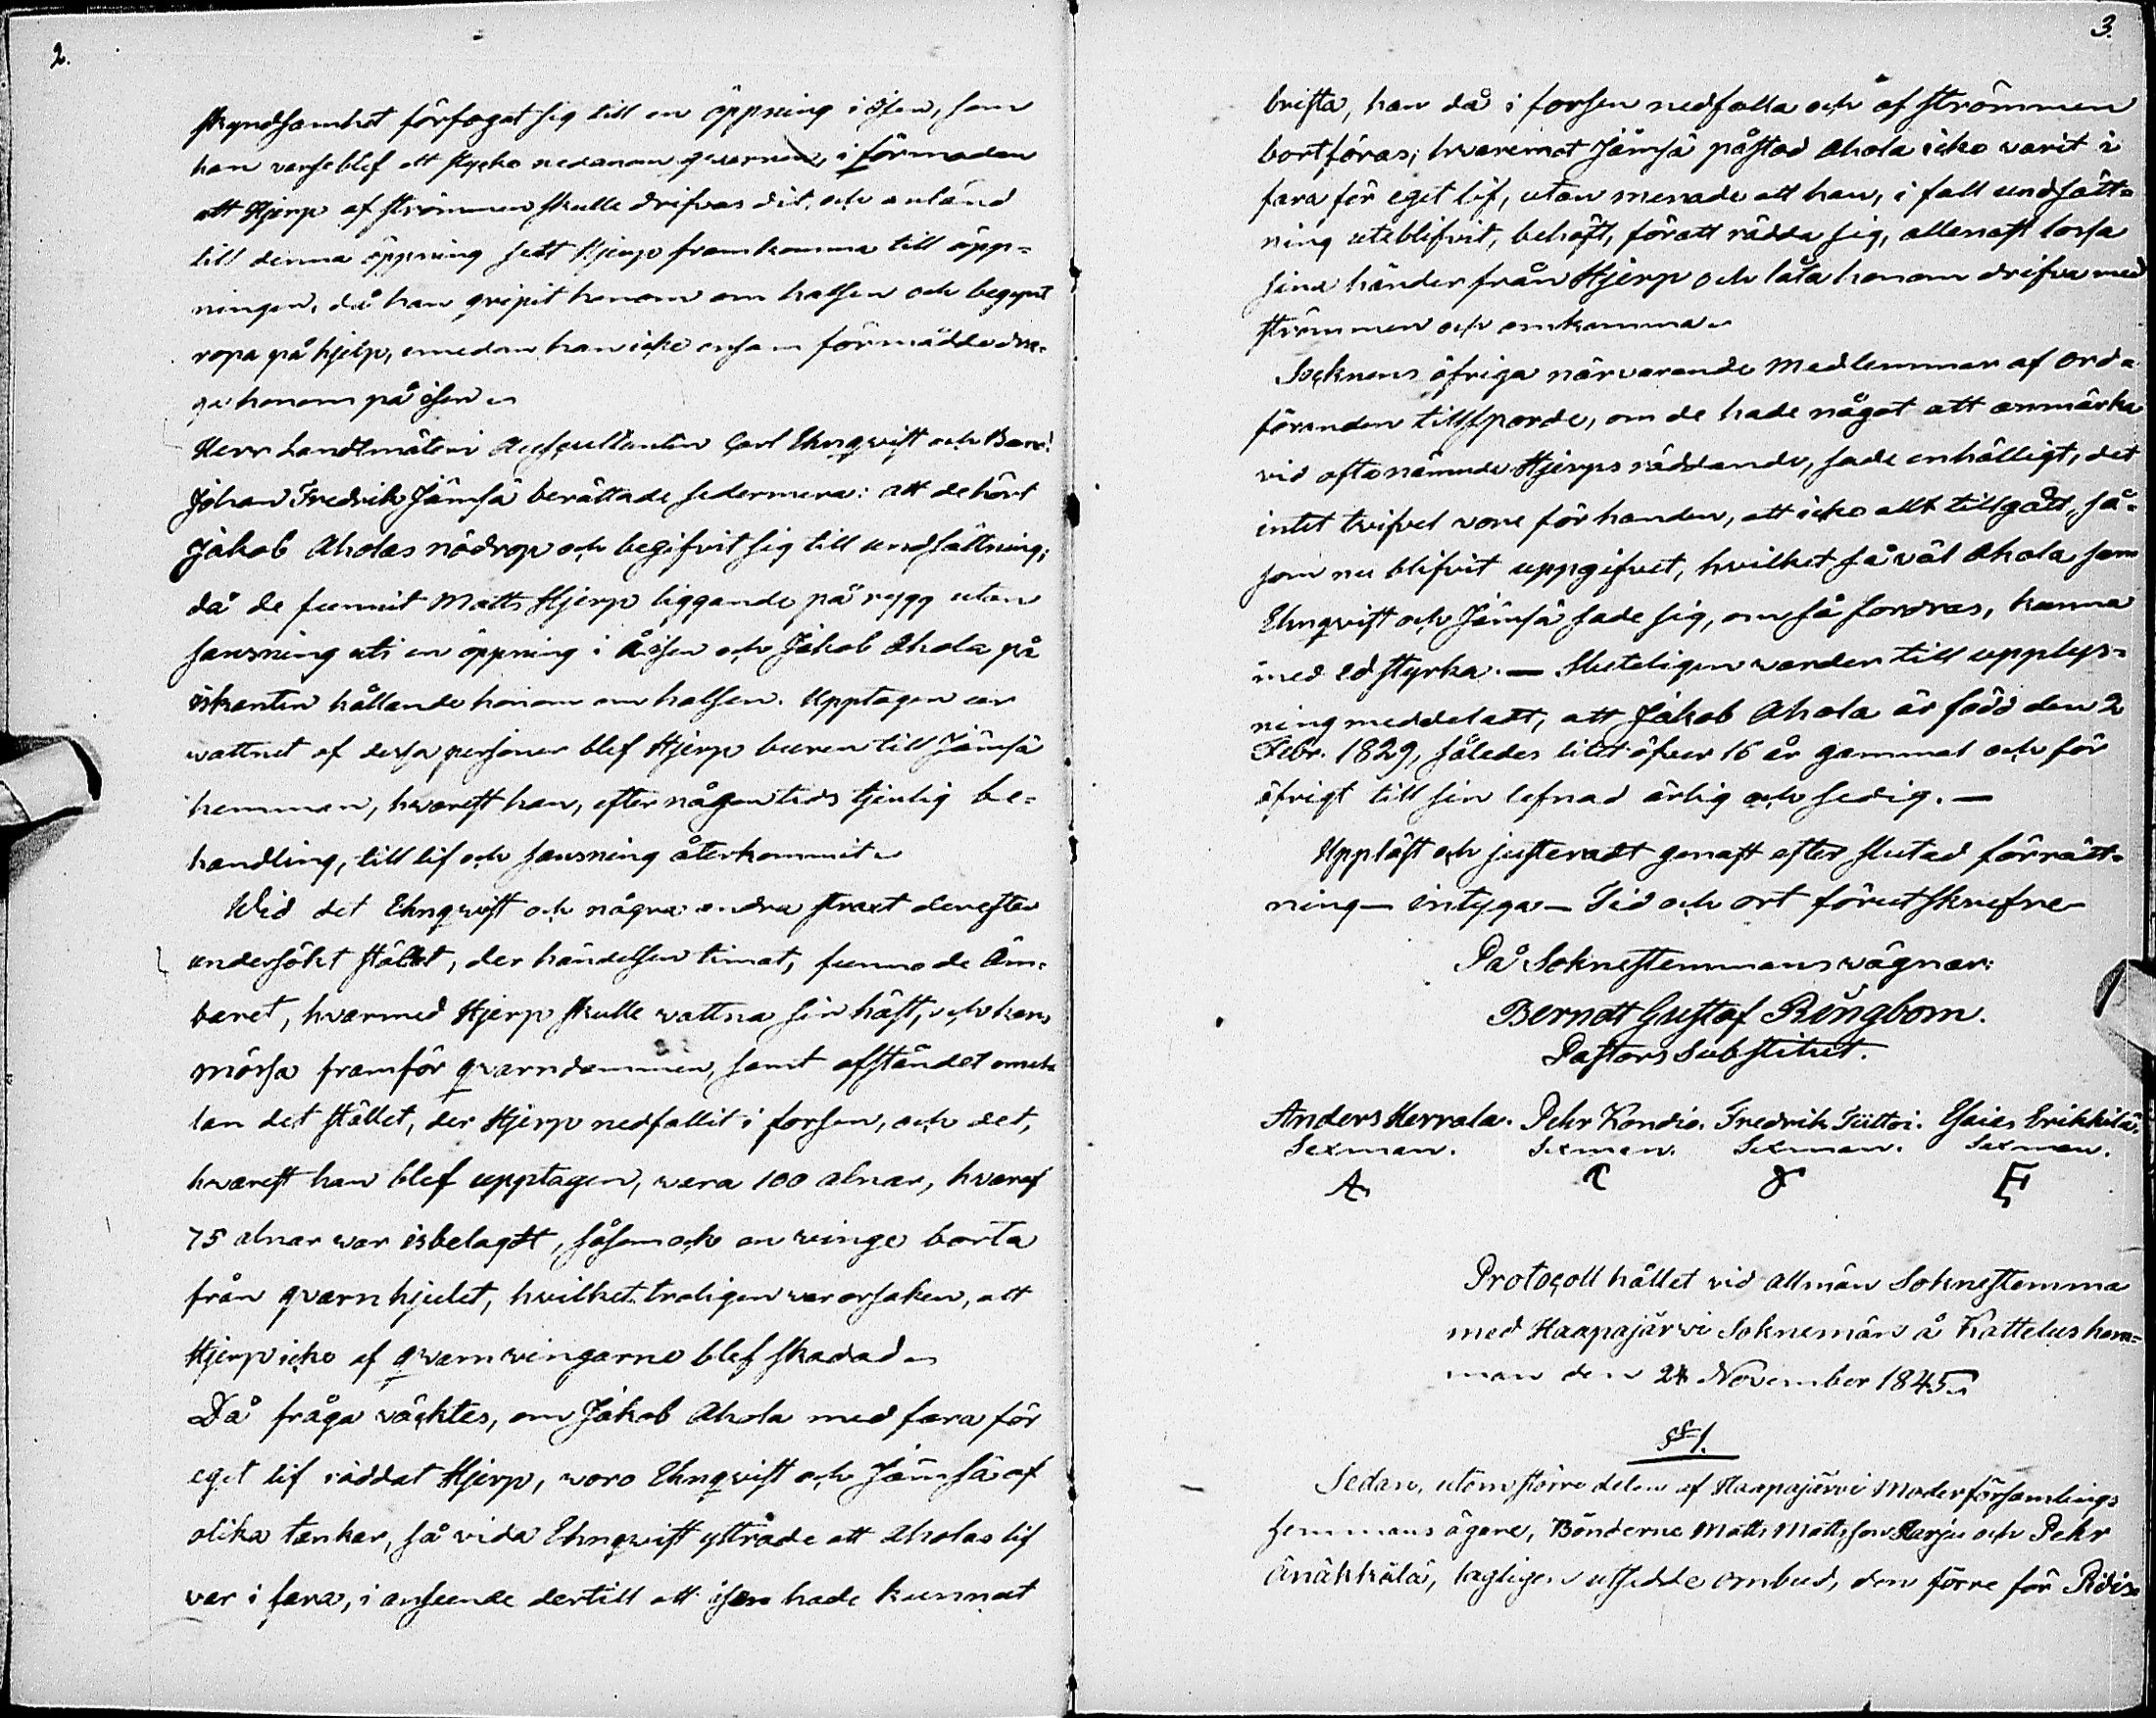 2.
skyndsamhet förfogat sig till en öppning i isen, som
han varseblef ett stycke nedanom qvarnen, i förmodan
att Hjerp af strömmen skulle drifvas dit, och anländ
till denna öppning sett Hjerp framkomma till öpp=
ningen, då han gripit honom om halsen och begynt
ropa på hjelp, emedan han icke ensam förmådde dra=
ga honom på isen.
Herr Landtmäteri Auscultanten Carl Ehnqvist och Bond.
Johan Fredrik Jämsä berättade sedermera: att de hört
Jakob Aholas nödrop och begifvit sig till undsättning;
då de funnit Matts Hjerp liggande på rygg utan
sansning uti en öppning i Åisen och Jakob Ahola på
iskanten hållande honom om halsen. Upptagen ur
wattnet af dessa personer blef Hjerp buren till Jämsä
hemman, hvarest han, efter någon tids tjenlig be=
handling, till lif och sansning återkommit.
Wid det Ehnqvist och några andra straxt derefter
undersökt stället, der händelsen timat, funno de Äm=
baret, hvarmed Hjerp skulle vattna sin häst, och hans
mössa framför qvarndammen, samt afståndet emel=
lan det stället, der Hjerp nedfallit i forsen, och det,
hvarest han blef upptagen, vara 100 alnar, hvaraf
75 alnar war isbelagdt, såsom ock en vinge borta
från qvarnhjulet, hvilket troligen var orsaken, att
Hjerp icke af qvarnvingarne blef skadad.
Då fråga väcktes, om Jakob Ahola med fara för
eget lif räddat Hjerp, woro Ehnqvist och Jämsä af
olika tankar, så vida Ehnqvist yttrade att Aholas lif
var i fara, i anseende dertill att isen hade kunnat
3.
brista, han då i forsen nedfalla och af strömmen
bortföras; hvaremot Jämsä påstod Ahola icke varit i
fara för eget lif, utan menade att han, i fall undsätt=
ning uteblifvit, behöft, för att rädda sig, allenast lossa
sina händer från Hjerp och låta honom drifva med
strömmen och omkomma.
Socknens öfriga närvarande Medlemmar af Ord=
föranden tillsporde, om de hade något att anmärka
vid oftanämnde Hjerps räddande, sade enhälligt, det
intet tvifvel vore för handen, att icke allt tillgått, så=
som nu blifvit uppgifvet, hvilket så väl Ahola som
Ehnqvist och Jämsä sade sig, om så fordras, kunna
med ed styrka. — Sluteligen warder till upplys=
ning meddeladt, att Jakob Ahola är född den 2
Febr. 1829, således litet öfver 16 år gammal och för
öfrigt till sin lefnad ärlig och sedig. —
Uppläst och justeradt genast efter slutad förrätt=
ning — intyga — Tid och ort förutskrefne
På Soknestemmans wägnar:
Berndt Gustaf Ringbom.
Pastors Substitut.
Anders Herrala. Pehr Kondio. Fredrik Tuttoi. Esaias Erikkilä.
Sexman. Sexman. Sexman. Sexman.
Protocoll hållet vid allmän Soknestemma
med Haapajärwi Soknemän å Kattelus hem=
man den 24 November 1845.
§ 1.
Sedan, utom större delen af Haapajärvi Moderförsamlings
hemmans ägare, Bönderne Matts Mattsson Karju och Pehr
Änäkkälä, lagligen utsedde ombud, den förre för Reis=